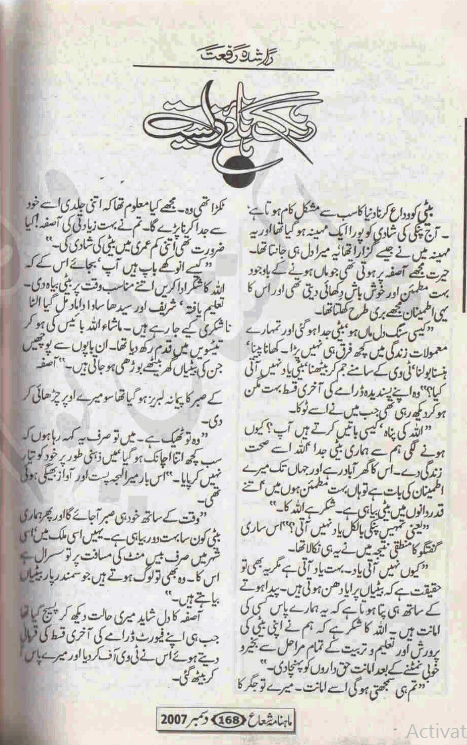 راشدہ رفعت
بیٹی کو وداع کرنا دنیا کا سب سے مشکل کام ہوتا ہے،
آج پنکی کی شادی کو پورا ایک مہینہ ہو گیا تھا اور یہ
مہینہ میں نے جیسے گزارا تھا یہ میرا دل ہی جانتا تھا۔
حیرت مجھے آصفہ پر ہوتی تھی جو ماں ہونے کے باوجود
بہت مطمئن اور خوش باش دکھائی دیتی تھی اور اس کا
یہی اطمینان مجھے بری طرح کھلتا تھا۔
"کیسی سنگ دل ماں ہو، بیٹی جدا ہو گئی اور تمہارے
معمولات زندگی میں کچھ فرق ہی نہیں پڑا۔ کھانا پینا،
ہنسنا بولنا، ٹی وی کے سامنے جم کر بیٹھنا، بیٹی یاد نہیں آتی
کیا؟" وہ اپنے پسندیدہ ڈرامے کی آخری قسط بہت مگن
ہو کر دیکھ رہی تھی جب میں نے اسے ٹوکا۔
"اللہ کی پناہ، کیسی باتیں کرتے ہیں آپ؟ کیوں
ہونے لگی ہم سے ہماری بیٹی جدا، اللہ اسے صحت
زندگی دے۔ اس کا گھر آباد رہے اور جہاں تک میرے
اطمینان کی بات ہے تو ہاں، بہت مطمئن ہوں میں، اتنے
قدر دانوں میں بیٹی بیاہی ہے۔ شکر ہے اللہ کا۔"
"یعنی تمہیں پنکی بالکل یاد نہیں آتی؟" اس ساری
گفتگو کا منطقی نتیجہ میں نے یہ ہی نکالا تھا۔
"کیوں نہیں آتی یاد۔ بہت یاد آتی ہے مگر یہ بھی تو
حقیقت ہے کہ بیٹیاں پرایا دھن ہوتی ہیں۔ پیدا ہوتے
کے ساتھ ہی پتا ہوتا ہے کہ یہ ہمارے پاس کسی کی
امانت ہیں۔ یہ اللہ کا شکر ہے کہ ہم نے اپنی بیٹی کی
پرورش اور تعلیم و تربیت کے تمام مراحل سے بخیر و
خوبی نمٹنے کے بعد امانت حق داروں کو پہنچا دی۔"
"تم ہی سمجھتی ہو گی اسے امانت۔ میرے تو جگر کا
ٹکڑا تھی وہ۔ مجھے کیا معلوم تھا کہ اتنی جلدی اسے خود
سے جدا کرنا پڑے گا۔ تم نے بہت زیادتی کی آصفہ! کیا
ضرورت تھی اتنی کم عمری میں بیٹی کی شادی کی۔"
"کیسے انوکھے باپ ہیں آپ، بجائے اس کے کہ
اللہ کا شکر ادا کریں اتنے مناسب وقت پر بیٹی بیاہ دی۔
تعلیم یافتہ، شریف اور سیدھا سادا داماد مل گیا، الٹا
ناشکری کیے جا رہے ہیں۔ ماشاء اللہ بائیس کی ہو کر
تئیسویں میں قدم رکھ دیا تھا۔ ان باپوں سے پوچھیں
جن کی بیٹیاں گھر بیٹھے بوڑھی ہو جاتی ہیں۔" آصفہ
کے صبر کا پیمانہ لبریز ہو گیا تھا سو میرے اوپر چڑھائی کر
دی۔
"وہ تو ٹھیک ہے۔ میں تو صرف یہ کہہ رہا ہوں کہ
سب کچھ اتنا اچانک ہو گیا، میں ذہنی طور پر خود کو تیار
نہیں کر پایا۔" اس بار میرا لہجہ پست اور آواز بھیگی ہوئی
تھی۔
"وقت کے ساتھ خود ہی صبر آ جائے گا اور پھر ہماری
بیٹی کون سا بہت دور بیاہی ہے۔ ہمیں اسی ملک میں، اسی
شہر میں صرف بیس منٹ کی مسافت پر تو سسرال ہے
اس کا۔ وہ بھی تو لوگ ہوتے ہیں جو سمندر پار بیٹیاں
بیاہتے ہیں۔"
آصفہ کا دل شاید میری حالت دیکھ کر پسیج گیا تھا
جب ہی اپنے فیورٹ ڈرامے کی آخری قسط کی قربانی
دیتے ہوئے اس نے ٹی وی آف کر دیا اور میرے پاس آ
کر بیٹھ گئی۔
ماہنامہ شعاع 168 دسمبر 2007
Activat